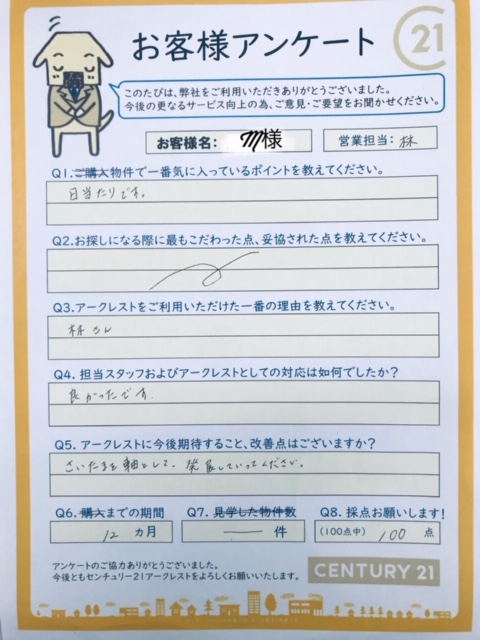 お客様アンケート
21
このたびは、弊社をご利用いただきありがとうございました。
今後の更なるサービス向上の為、ご意見・ご要望をお聞かせください。
お客様名： M様
営業担当： 林
Q1.ご購入物件で一番気に入っているポイントを教えてください。
日当たりです。
Q2.お探しになる際に最もこだわった点、妥協された点を教えてください。
Q3.アークレストをご利用いただけた一番の理由を教えてください。
林さん
Q4. 担当スタッフおよびアークレストとしての対応は如何でしたか？
良かったです.
Q5. アークレストに今後期待すること、改善点はございますか？
さいたまを軸として、発展していってください。
Q6. 購入までの期間
12 カ月
Q7. 見学した物件数
件
Q8. 採点お願いします！
(100点中) 100 点
アンケートのご協力ありがとうございました。
今後ともセンチュリー21アークレストをよろしくお願いいたします。
CENTURY 21